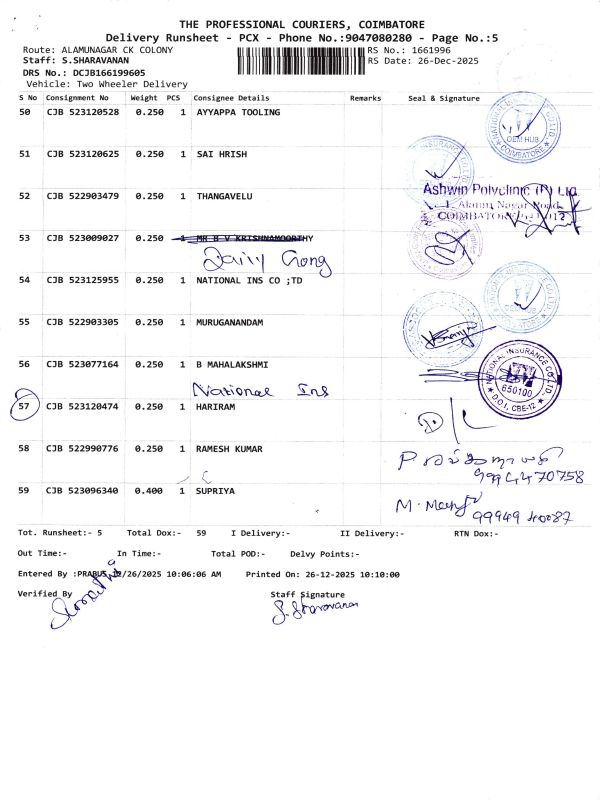 THE PROFESSIONAL COURIERS, COIMBATORE
Delivery Runsheet - PCX - Phone No.:9047080280 - Page No.:5
Route: ALAMUNAGAR CK COLONY
RS No.: 1661996
Staff: S.SHARAVANAN
RS Date: 26-Dec-2025
DRS No.: DCJB166199605
Vehicle: Two Wheeler Delivery
S No Consignment No Weight PCS Consignee Details Remarks Seal & Signature
50 CJB 523120528 0.250 1 AYYAPPA TOOLING
OEM HUB
COIMBATORE
51 CJB 523120625 0.250 1 SAI HRISH
52 CJB 522903479 0.250 1 THANGAVELU
Ashwin Polyclinic (P) Ltd.
1, Alamu Nagar Road,
53 CJB 523009027 0.250 1 MR B V KRISHNAMOORTHY
54 CJB 523125955 0.250 1 NATIONAL INS CO ;TD
55 CJB 522903305 0.250 1 MURUGANANDAM
56 CJB 523077164 0.250 1 B MAHALAKSHMI
National Ins
NATIONAL INSURANCE CO.LTD.
650100
D.O.I, CBE-12
57 CJB 523120474 0.250 1 HARIRAM
58 CJB 522990776 0.250 1 RAMESH KUMAR
59 CJB 523096340 0.400 1 SUPRIYA
Tot. Runsheet:- 5 Total Dox:- 59 I Delivery:- II Delivery:- RTN Dox:-
Out Time:- In Time:- Total POD:- Delvy Points:-
Entered By :PRABUS 12/26/2025 10:06:06 AM Printed On: 26-12-2025 10:10:00
Verified By Staff Signature
S. Sharavanan